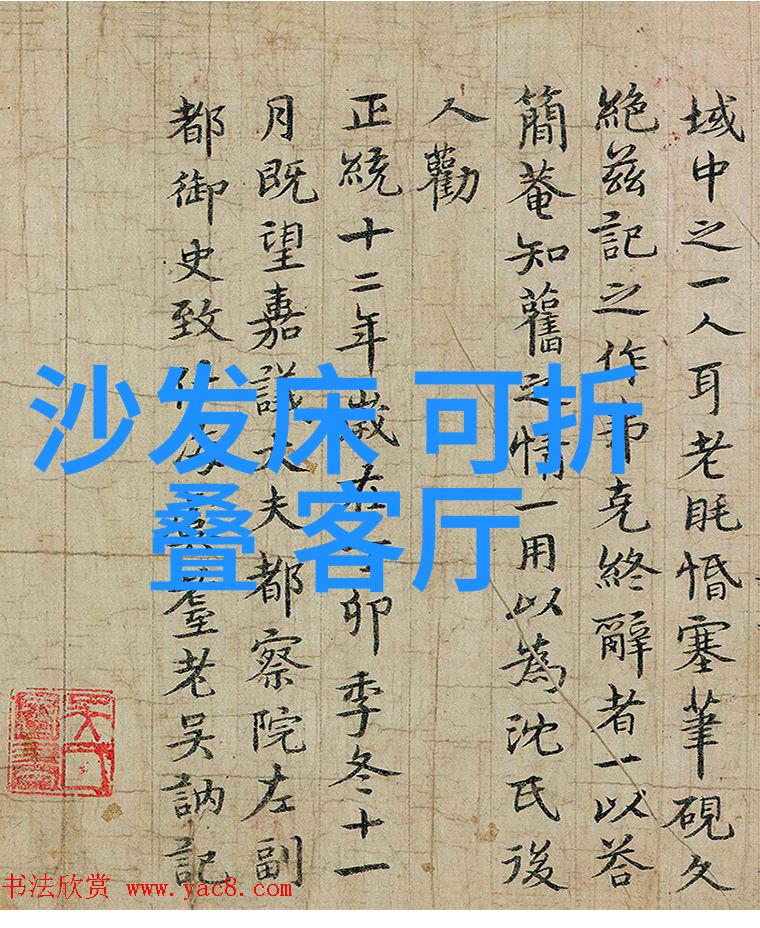 域中之一人耳老眊惛塞筆硯久
絕茲記之作弗克終辭者一以荅
簡菴知舊之情一用以為沈氏後
人勸
正統十二年歲在丁卯季冬十一
月既望嘉議大夫都察院左副
都御史致仕耋老吳訥記
沙发床 可折
叠 客厅
书法欣赏 www.yac8.com